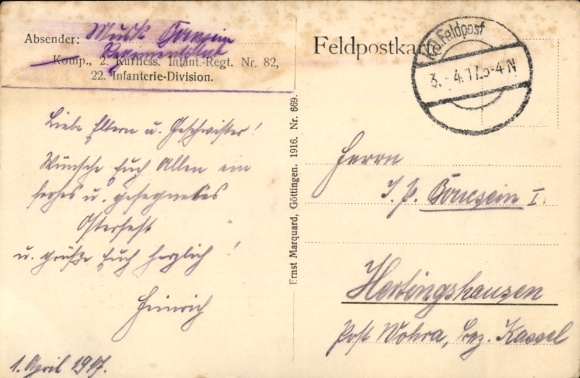 Absender: Musk. Bonsein
Regimentsstab
Komp., 2. Kurhess. Infant.-Regt. Nr. 82,
22. Infanterie-Division.
Liebe Eltern u. Geschwister!
Wünsche Euch Allen ein
frohes u. gesegnetes
Osterfest
u. grüße Euch herzlich!
Heinrich
1. April 1917.
Ernst Marquard, Göttingen. 1916. Nr. 669.
Feldpostkarte
K.D. Feldpost
3. - 4. 17. 3-4 N
Herrn
J. P. I.
Hertingshausen
Post Wohra, bez. Kassel